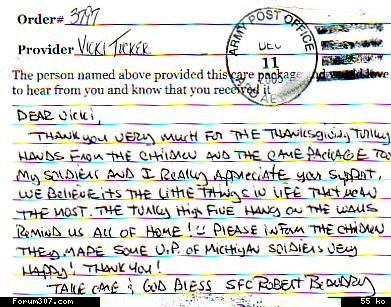 Order# 3797
Provider Vicki Tucker
ARMY POST OFFICE
DEC
11
2005
AE
The person named above provided this care package and would love
to hear from you and know that you received it
DEAR Vicki,
THANK you VERY MUCH FOR THE THANKSgiving TURkey
HANDS FROM THE CHilDREN AND THE CARE PACKAGE TOO
My SOLDIERS AND I REAlly AppRECiATE your Support,
WE BELIEVE its THE little THINgs IN LiFE THAT MEAN
THE MOST. THE TURkey High FIVE HANg ON THE WALLS
REMIND US All OF HOME! PLEASE inForm THE CHilDREN
THEy MADE SomE U.P. of MiCHigAN SOLDIERS VERy
HAppy! THANK you!
TAKE CARE & GOD BLESS SFC ROBERT BEAUDRY
Forum307.com
55 ko